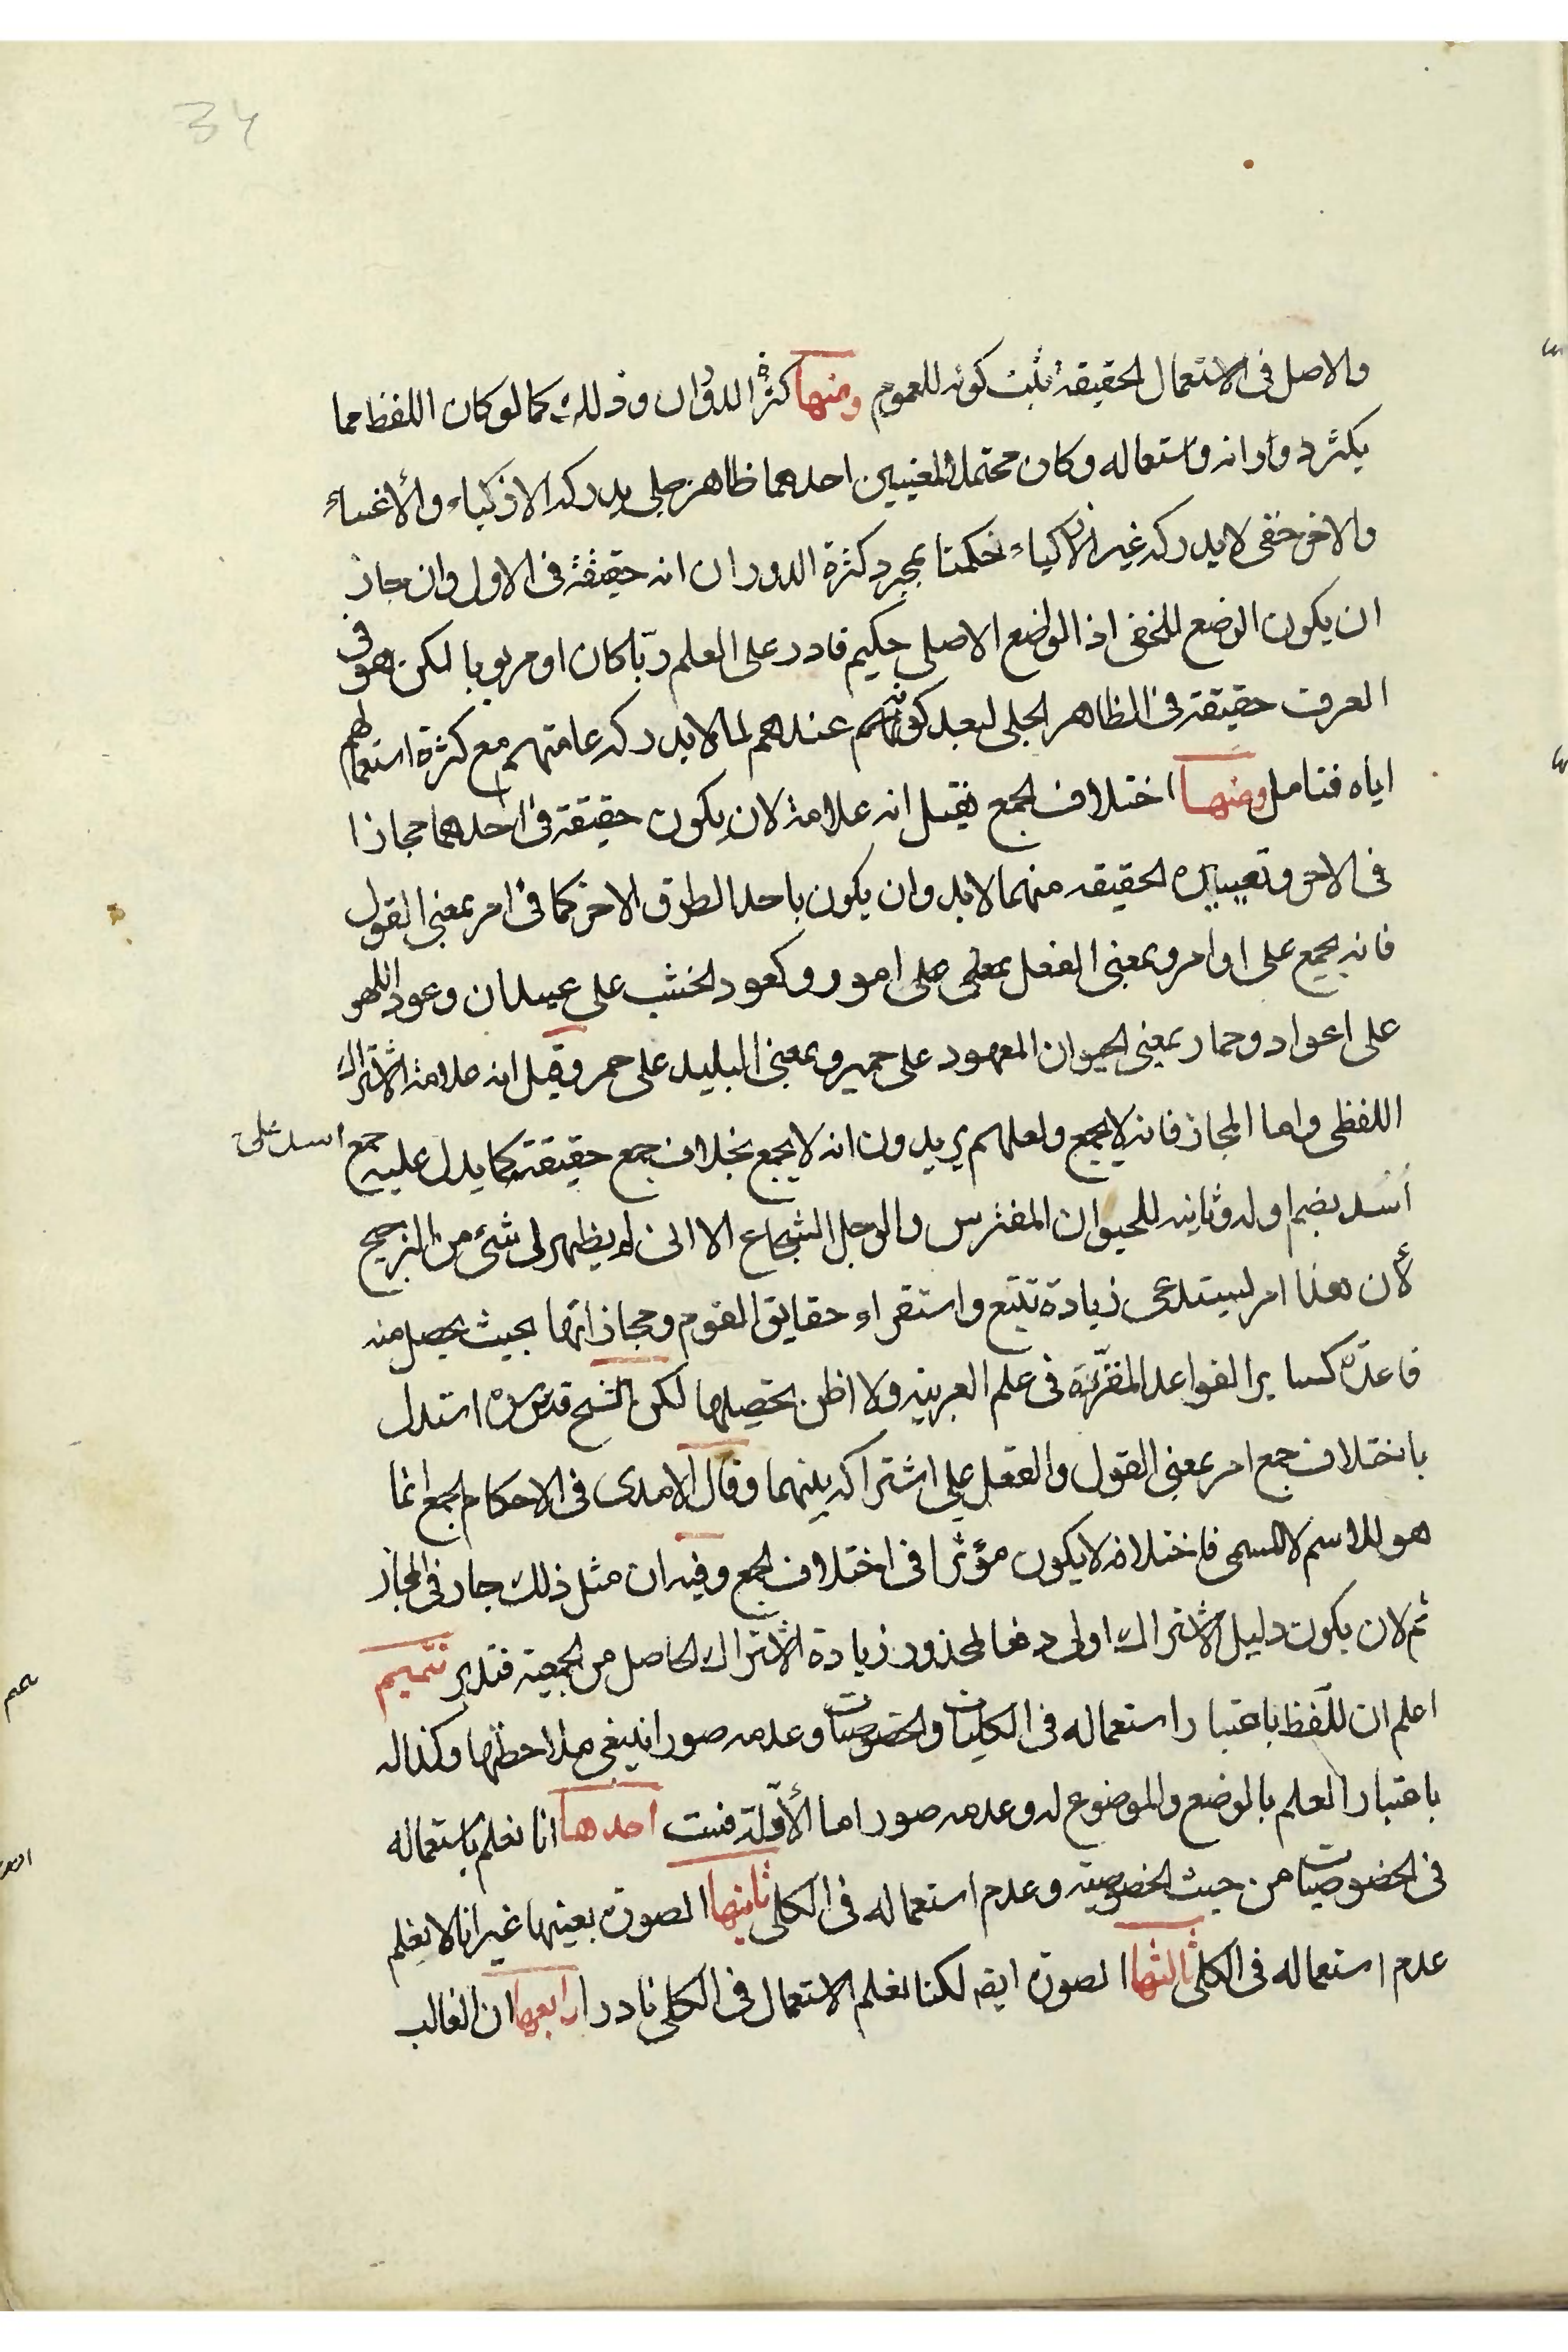 34
والاصل فى الاستعمال الحقيقة يثبت كونه للعموم ومنها كثرة الدوران وذلك كما لو كان اللفظ مما
يكثر دورانه واستعماله وكان محتملا لمعنيين احدهما ظاهر جلى يدركه الاذكياء والأغبياء
والاخر خفى لا يدركه غير الاذكياء حكمنا بمجرد كثرة الدوران انه حقيقة فى الاول وان جاز
ان يكون الوضع للخفى اذ الواضع الاصلى حكيم قادر على العلم ربّا كان او مربوبا لكن هو فى
العرف حقيقة فى الظاهر الجلى لبعد كونه عندهم لما لا يدركه عامتهم مع كثرة استعمالهم
اياه فتامل ومنها اختلاف الجمع فقيل انه علامة لان يكون حقيقة فى احدهما مجازا
فى الاخر وتعيين الحقيقه منهما لا بد وان يكون باحد الطرق الاخر كما فى امر بمعنى القول
فانه يجمع على اوامر وبمعنى الفعل على امور وكعود الخشب على عيدان وعود اللهو
على اعواد وحمار بمعنى الحيوان المعهود على حمير وبمعنى البليد على حمر وقيل انه علامة الاشتراك
اللفظى واما المجاز فانه لا يجمع ولعلهم يريدون انه لا يجمع بخلاف جمع حقيقته كما يدل عليه جمع اسد على
أُسُد بضم اوله وثانيه للحيوان المفترس والرجل الشجاع الا انى لم يظهر لى شئ من الترجيح
لأن هذا امر يستدعى زيادة تتبع واستقراء حقايق القوم ومجازاتها بحيث يحصل منه
قاعدة كساير القواعد المقررة فى علم العربية ولا اظن بحصيلها لكن الشيخ قدس سره استدل
باختلاف جمع امر بمعنى القول والفعل على اشتراكه بينهما وقال الامدى فى الاحكام الجمع انما
هو للاسم لا للمسمى فاختلافه لا يكون مؤثرا فى اختلاف الجمع وفيه ان مثل ذلك جار فى المجاز
ثم لان يكون دليل الاشتراك اولى دفعا لمحذور زيادة الاشتراك الحاصل من الجمعية فتدبر تتميم
اعلم ان للفظ باعتبار استعماله فى الكليات والخصوصيات وعدمه صورا ينبغى ملاحظتها وكذا له
باعتبار العلم بالوضع والموضوع له وعدمه صور اما الأوّلة فست احدها انا نعلم باستعماله
فى الخصوصيات من حيث الخصوصية وعدم استعماله فى الكلى ثانيها الصورة بعينها غير انا لا نعلم
عدم استعماله فى الكلى ثالثها الصورة ايضا لكنا نعلم الاستعمال فى الكلى نادرا رابعها ان الغالب